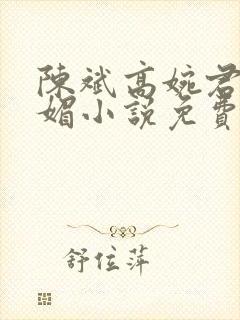 陳斌高婉君
媚小說免費
舒位萍